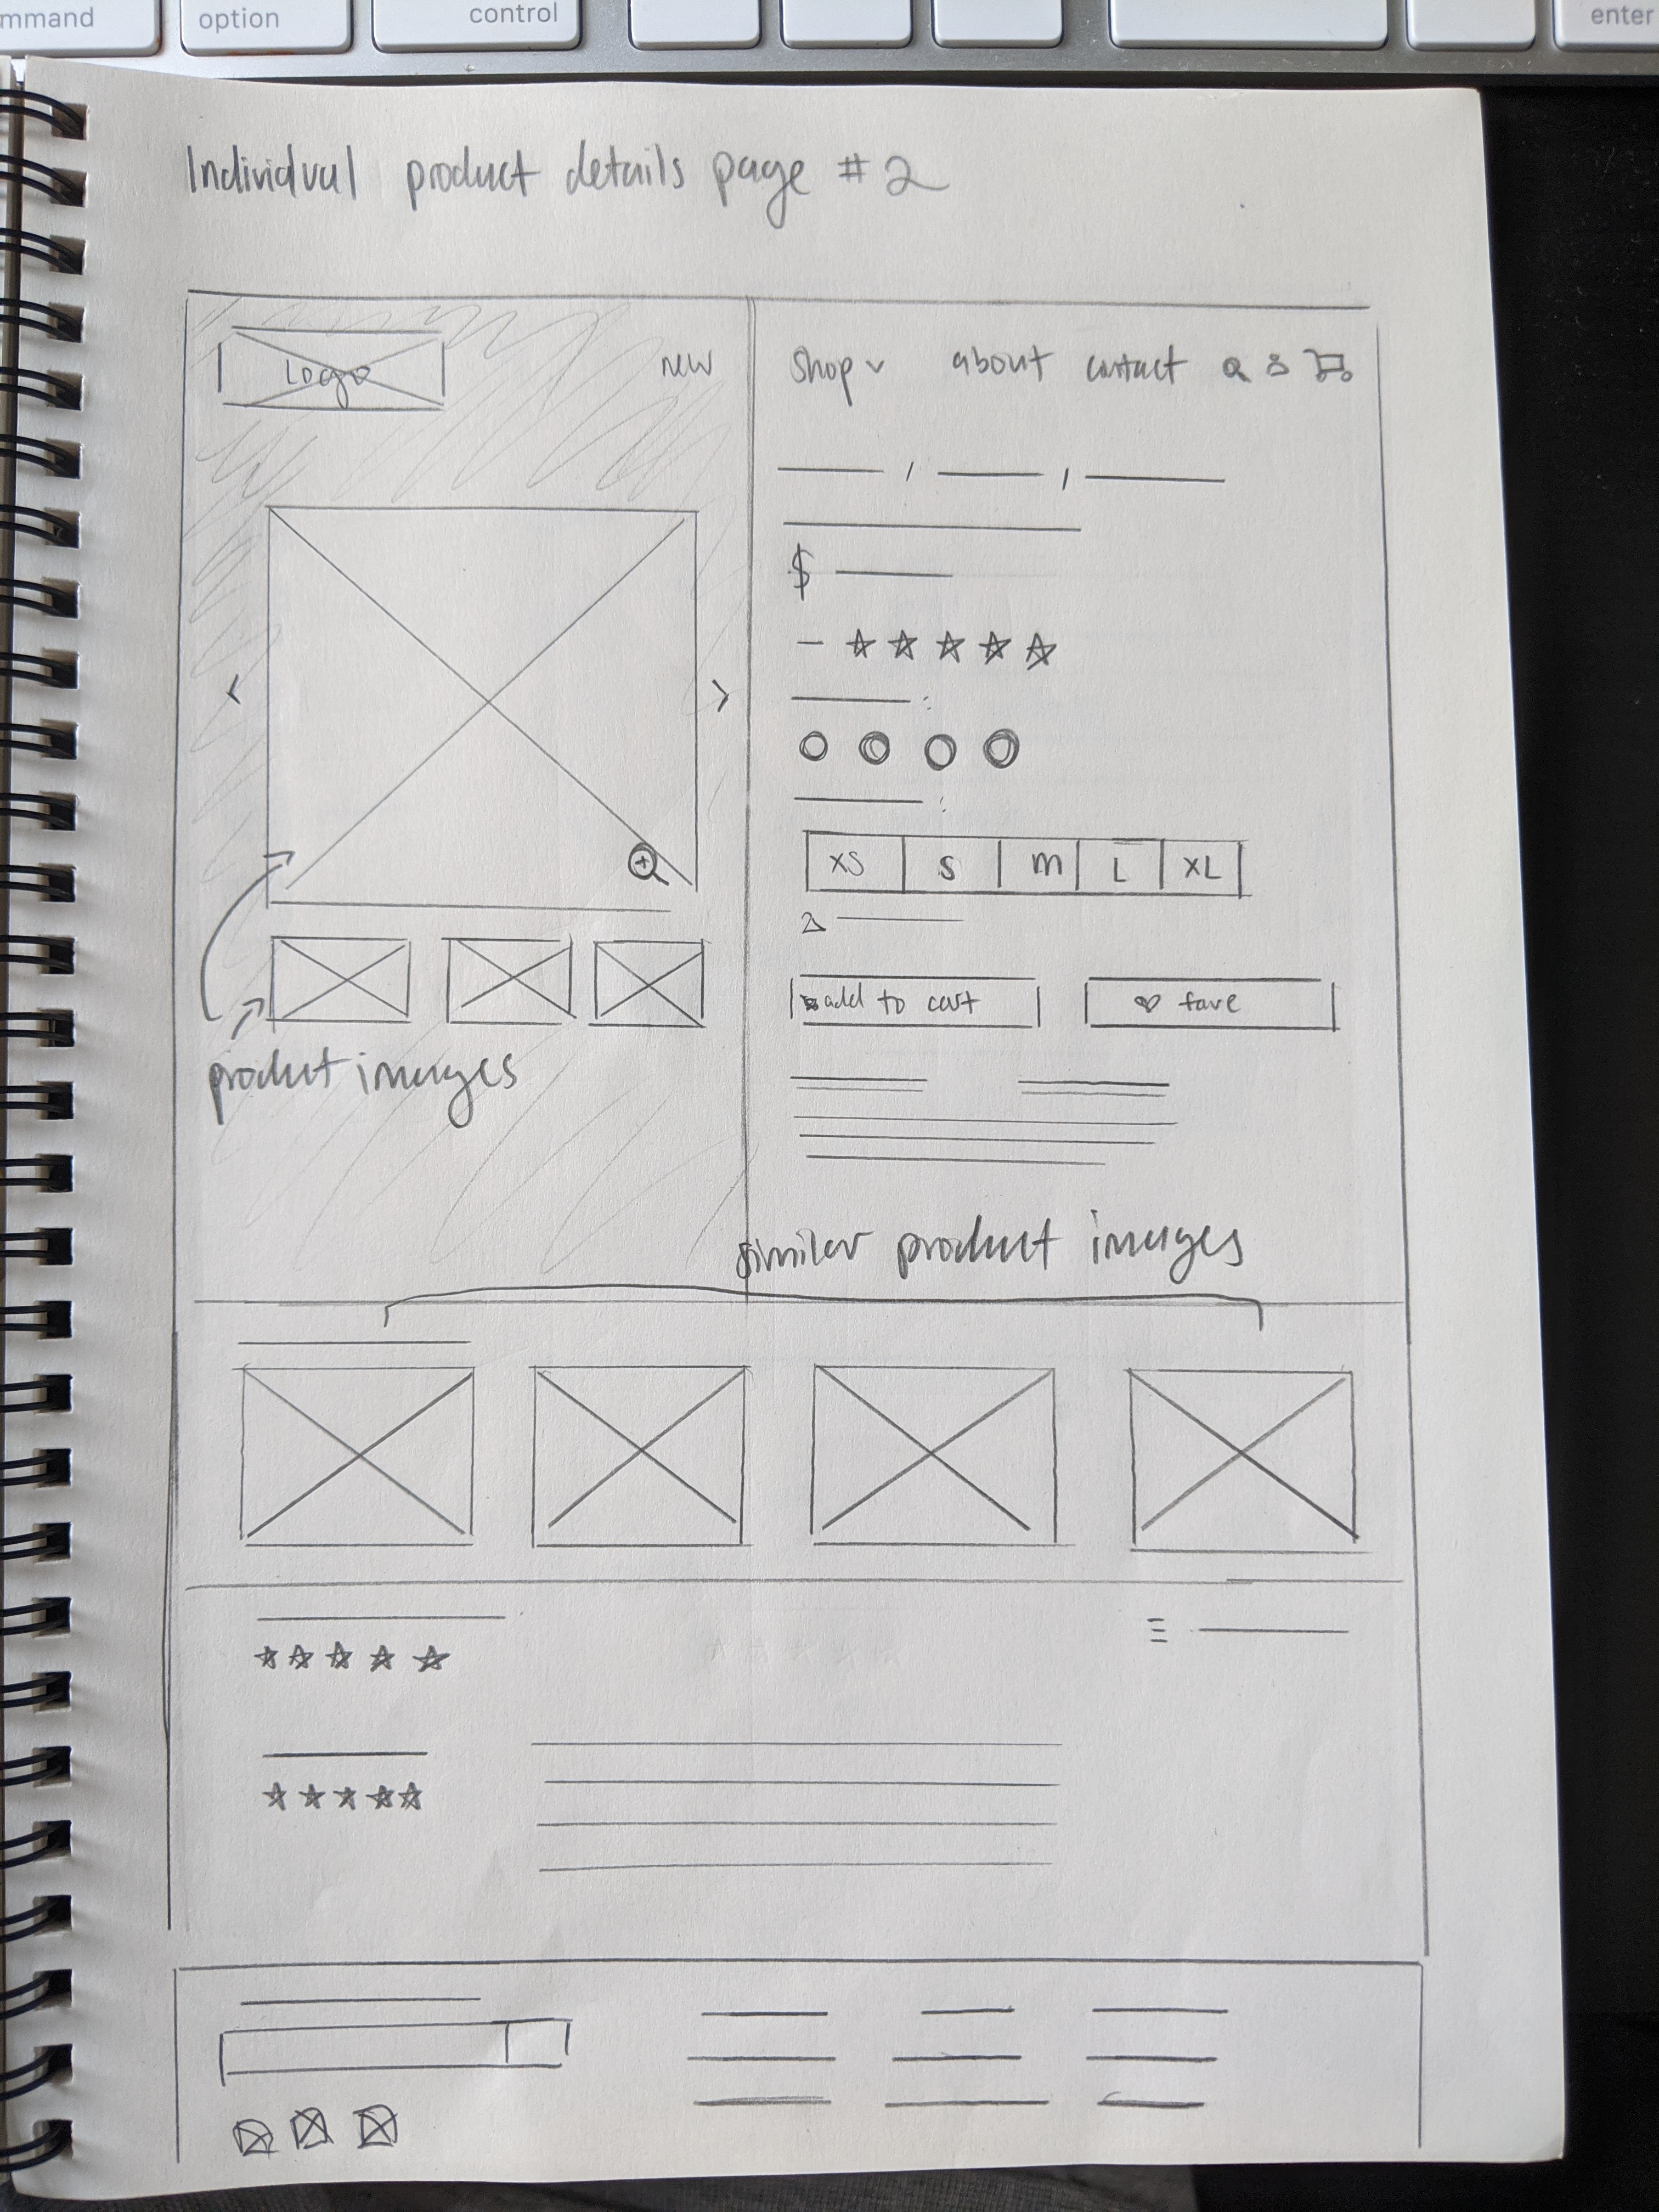 mmand
option
control
enter
Individual product details page #2
Logo
new
shop
about
contact
$
XS
S
M
L
XL
add to cart
fave
product images
similar product images